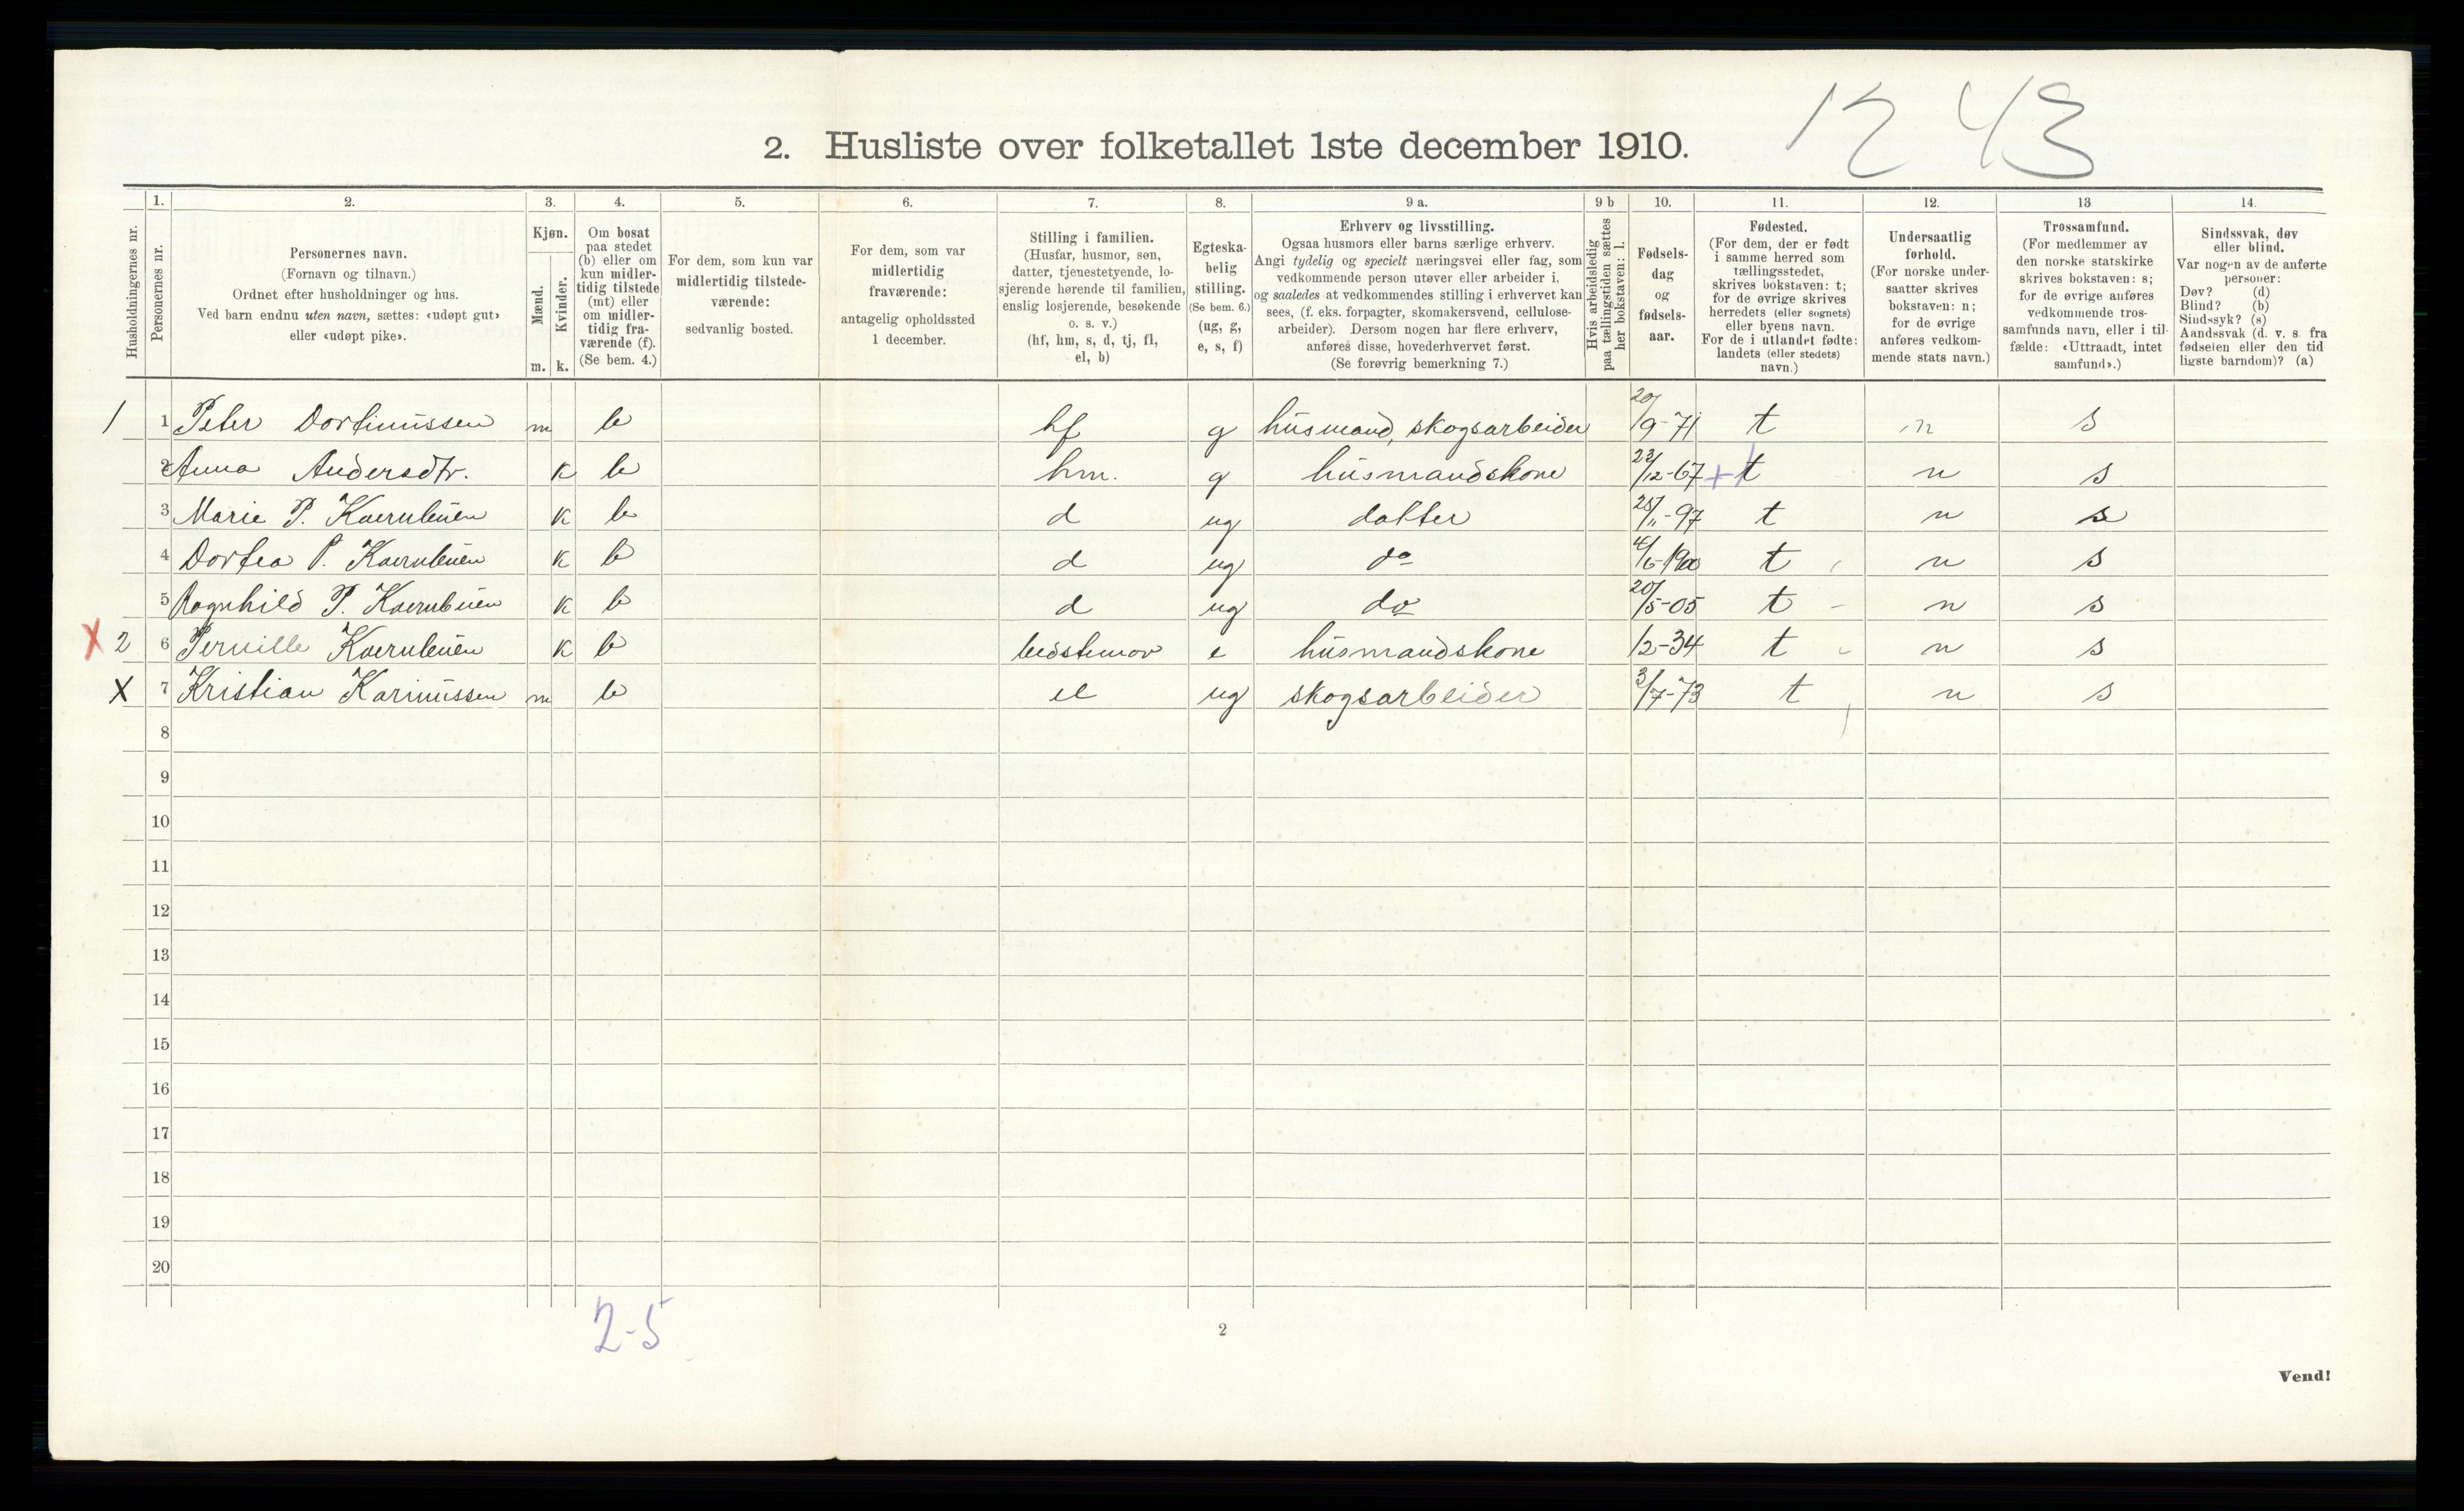 12 43
2. Husliste over folketallet 1ste december 1910.
Husholdningernes nr.
1. Personernes nr.
2. Personernes navn.
(Fornavn og tilnavn.)
Ordnet efter husholdninger og hus.
Ved barn endnu uten navn, sættes: «udøpt gut»
eller «udøpt pike».
3. Kjøn.
Mænd. m.
Kvinder. k.
4. Om bosat
paa stedet
(b) eller om
kun midler-
tidig tilstede
(mt) eller
om midler-
tidig fra-
værende (f).
(Se bem. 4.)
5. For dem, som kun var
midlertidig tilstede-
værende:
sedvanlig bosted.
6. For dem, som var
midlertidig
fraværende:
antagelig opholdssted
1 december.
7. Stilling i familien.
(Husfar, husmor, søn,
datter, tjenestetyende, lo-
sjerende hørende til familien,
enslig losjerende, besøkende
o. s. v.)
(hf, hm, s, d, tj, fl,
el, b)
8. Egteska-
belig
stilling.
(Se bem. 6.)
(ug, g,
e, s, f)
9 a. Erhverv og livsstilling.
Ogsaa husmors eller barns særlige erhverv.
Angi tydelig og specielt næringsvei eller fag, som
vedkommende person utøver eller arbeider i,
og saaledes at vedkommendes stilling i erhvervet kan
sees, (f. eks. forpagter, skomakersvend, cellulose-
arbeider). Dersom nogen har flere erhverv,
anføres disse, hovederhvervet først.
(Se forøvrig bemerkning 7.)
9 b Hvis arbeidsledig
paa tællingstiden sættes
her bokstaven: l.
10. Fødsels-
dag
og
fødsels-
aar.
11. Fødested.
(For dem, der er født
i samme herred som
tællingsstedet,
skrives bokstaven: t;
for de øvrige skrives
herredets (eller sognets)
eller byens navn.
For de i utlandet fødte:
landets (eller stedets)
navn.)
12. Undersaatlig
forhold.
(For norske under-
saatter skrives
bokstaven: n;
for de øvrige
anføres vedkom-
mende stats navn.)
13 Trossamfund.
(For medlemmer av
den norske statskirke
skrives bokstaven: s;
for de øvrige anføres
vedkommende tros-
samfunds navn, eller i til-
fælde: «Uttraadt, intet
samfund».)
14. Sindssvak, døv
eller blind.
Var nogen av de anførte
personer:
Døv? (d)
Blind? (b)
Sindssyk? (s)
Aandssvak (d. v. s. fra
fødselen eller den tid
ligste barndom)? (a)
1 1 Peter Dortinussen m b hf g husmand, skogsarbeider 20/9-71 t n s
2 Anna Andersdtr. k b hm. g husmandskone 23/12-67 + t n s
3 Marie P. Kvernbuen k b d ug datter 25/11-97 t n s
4 Dortea P. Kvernbuen k b d ug do 4/6-1900 t n s
5 Ragnhild P. Kvernbuen k b d ug do 20/5-05 t - n s
X 2 6 Pernille Kvernbuen k b bedstemor e husmandskone 1/2-34 t n s
X 7 Kristian Karinussen m b el ug skogsarbeider 3/7-73 t n s
8
9
10
11
12
13
14
15
16
17
18
19
20
2-5
2
Vend!